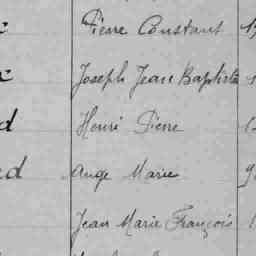 Pierre Constant
Joseph Jean Baptiste
d Henri Pierre
ed Ange Marie
Jean Marie François